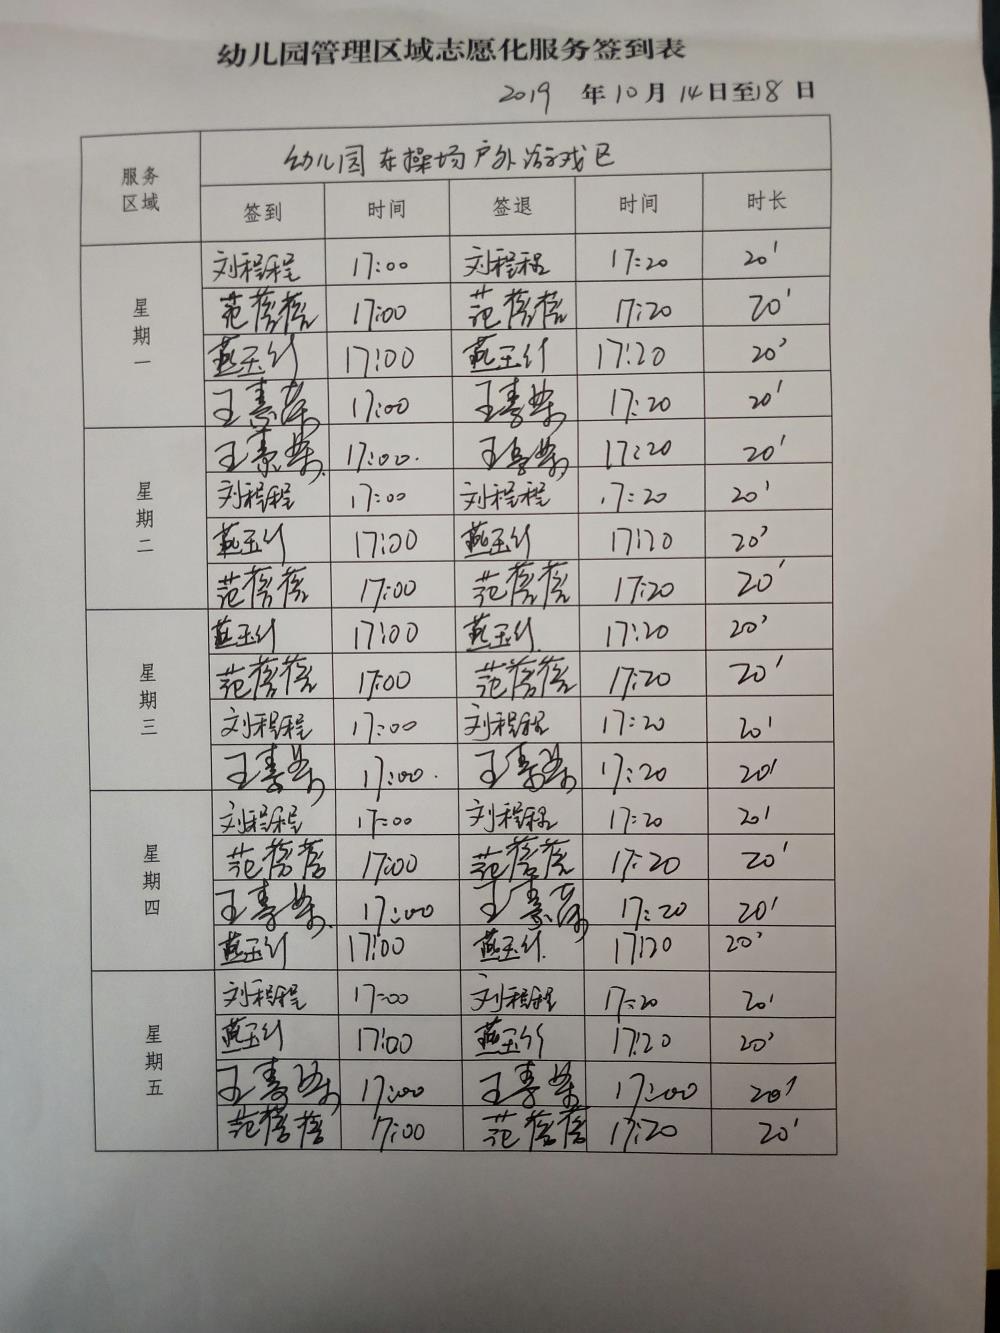 幼儿园管理区域志愿化服务签到表
2019 年10月14日至18日
服务区域 幼儿园东操场户外游戏区
签到 时间 签退 时间 时长
星期一
刘程程 17:00 刘程程 17:20 20'
范蓓蓓 17:00 范蓓蓓 17:20 20'
燕玉竹 17:00 燕玉竹 17:20 20'
王素荣 17:00 王素荣 17:20 20'
星期二
王素荣 17:00. 王素荣 17:20 20'
刘程程 17:00 刘程程 17:20 20'
燕玉竹 17:00 燕玉竹 17:20 20'
范蓓蓓 17:00 范蓓蓓 17:20 20'
星期三
燕玉竹 17:00 燕玉竹 17:20 20'
范蓓蓓 17:00 范蓓蓓 17:20 20'
刘程程 17:00 刘程程 17:20 20'
王素荣 17:00. 王素荣 17:20 20'
星期四
刘程程 17:00 刘程程 17:20 20'
范蓓蓓 17:00 范蓓蓓 17:20 20'
王素荣 17:00 王素荣 17:20 20'
燕玉竹 17:00 燕玉竹 17:20 20'
星期五
刘程程 17:00 刘程程 17:20 20'
燕玉竹 17:00 燕玉竹 17:20 20'
王素荣 17:00 王素荣 17:00 20'
范蓓蓓 17:00 范蓓蓓 17:20 20'